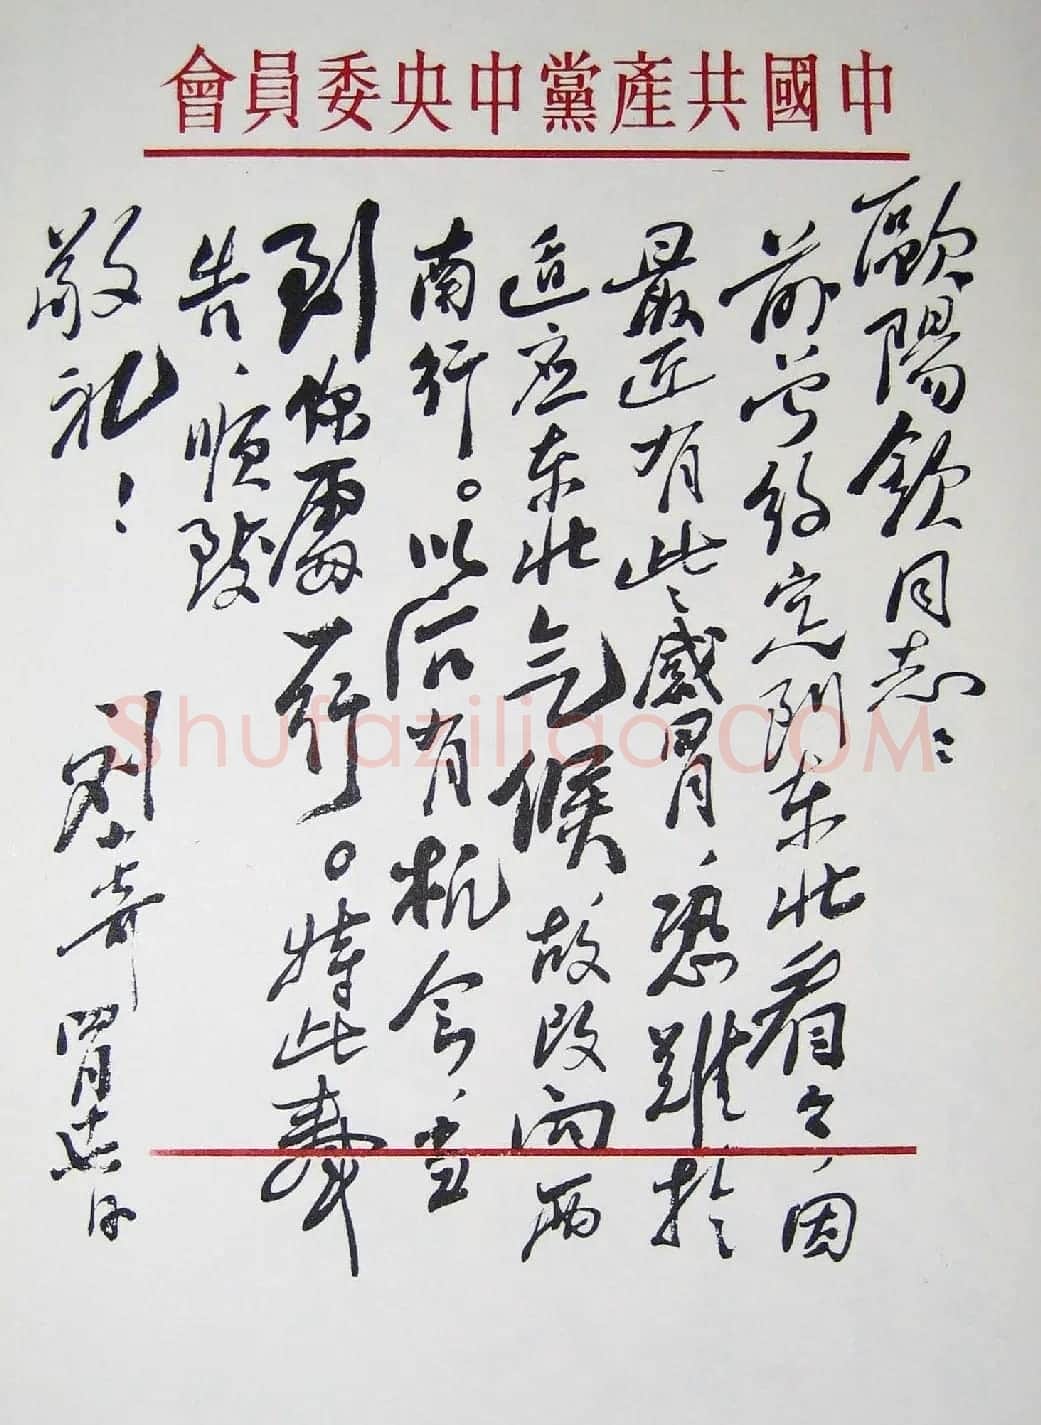 中國共產黨中央委員會
歐陽欽同志：
前曾约定到东北看々，因
最近有些感冒，恐难於
适应东北气候，故改向西
南行。以后有机会，当
到你處一行。特此奉
告，順致
敬礼！
刘少奇 四月十七日
Shufaziliao.COM